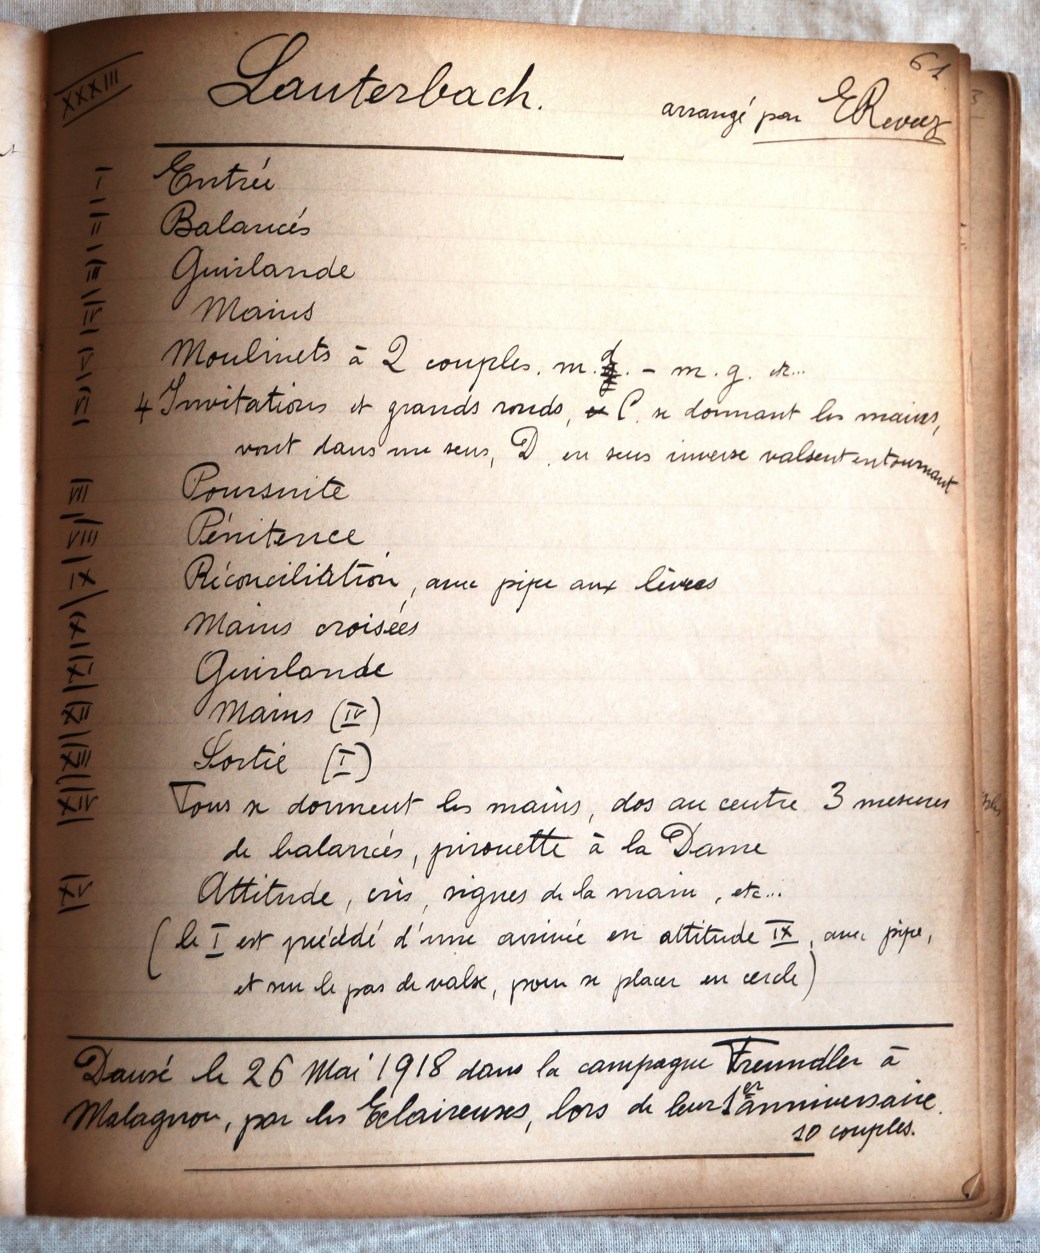 61
XXXIII
Lauterbach.
arrangé par E Revoy
I Entrée
II Balancés
III Guirlande
IV Mains
V Moulinets à 2 couples. m. d. - m. g. etc...
VI 4 Invitations et grands ronds, C. se donnant les mains,
vont dans un sens, D. en sens inverse valsent en tournant
VII Poursuite
VIII Pénitence
IX Réconciliation, avec pipe aux lèvres
X Mains croisées
XI Guirlande
XII Mains (IV)
XIII Sortie (I)
XIV Tous se donnent les mains, dos au centre 3 mesures
de balancés, pirouette à la Dame
XV Attitude, cris, signes de la main, etc...
(le I est précédé d'une arrivée en attitude IX, avec pipe,
et sur le pas de valse, pour se placer en cercle)
Dansé le 26 Mai 1918 dans la campagne Freundler à
Malagnou, par les Eclaireuses, lors de leur 1er anniversaire.
10 couples.